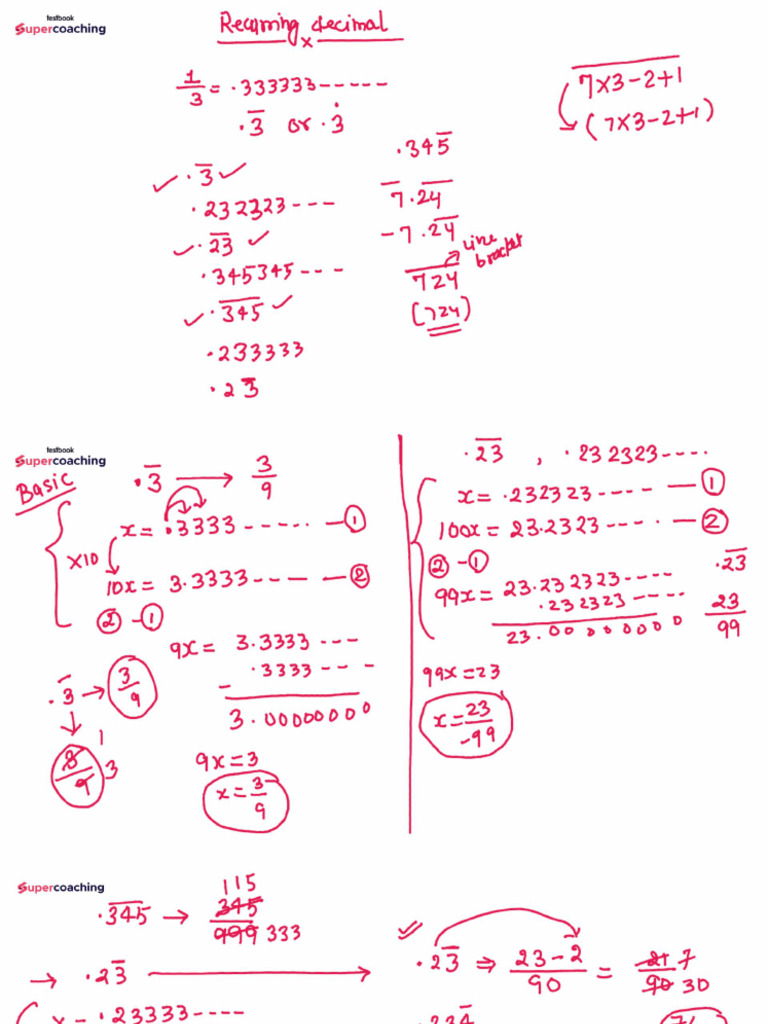 testbook
Supercoaching
Recurring decimal
×
1/3 = .333333-----
.3̅ or .3̇
✓ .3̅ ✓
.232323---
✓ .2̅3̅ ✓
.345345---
✓ .3̅4̅5̅ ✓
.233333
.23̅
.345̅
7̅.2̅4̅
-7.2̅4̅
line bracket
7̅2̅4̅
(724)
7×3-2+1
(7×3-2+1)
testbook
Supercoaching
Basic
.3̅ → 3/9
x = .3333-----. —①
×10
10x = 3.3333---- —②
②-①
9x = 3.3333---
.3333---
-
3.00000000
9x=3
x=3/9
.3̅ → 3/9
3/9
1
3
.2̅3̅ , .232323----.
x = .232323---- —①
100x = 23.2323----. —②
②-①
99x = 23.232323----
.232323----
23.00000000
.2̅3̅
23/99
99x=23
x=23/-99
Supercoaching
.3̅4̅5̅ → 345/999
115
333
→ .23̅ →
x = .23333----
✓ .23̅ ⇒ 23-2/90 = 21/90
7
30